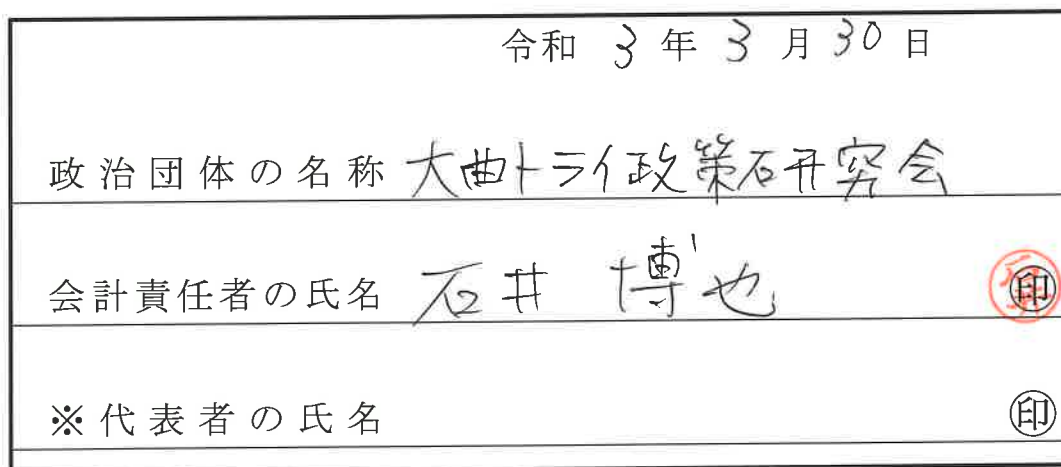 令和 3 年 3 月 30 日
政治団体の名称 大曲トライ政策研究会
会計責任者の氏名 石井 博也 ㊞
※代表者の氏名 ㊞